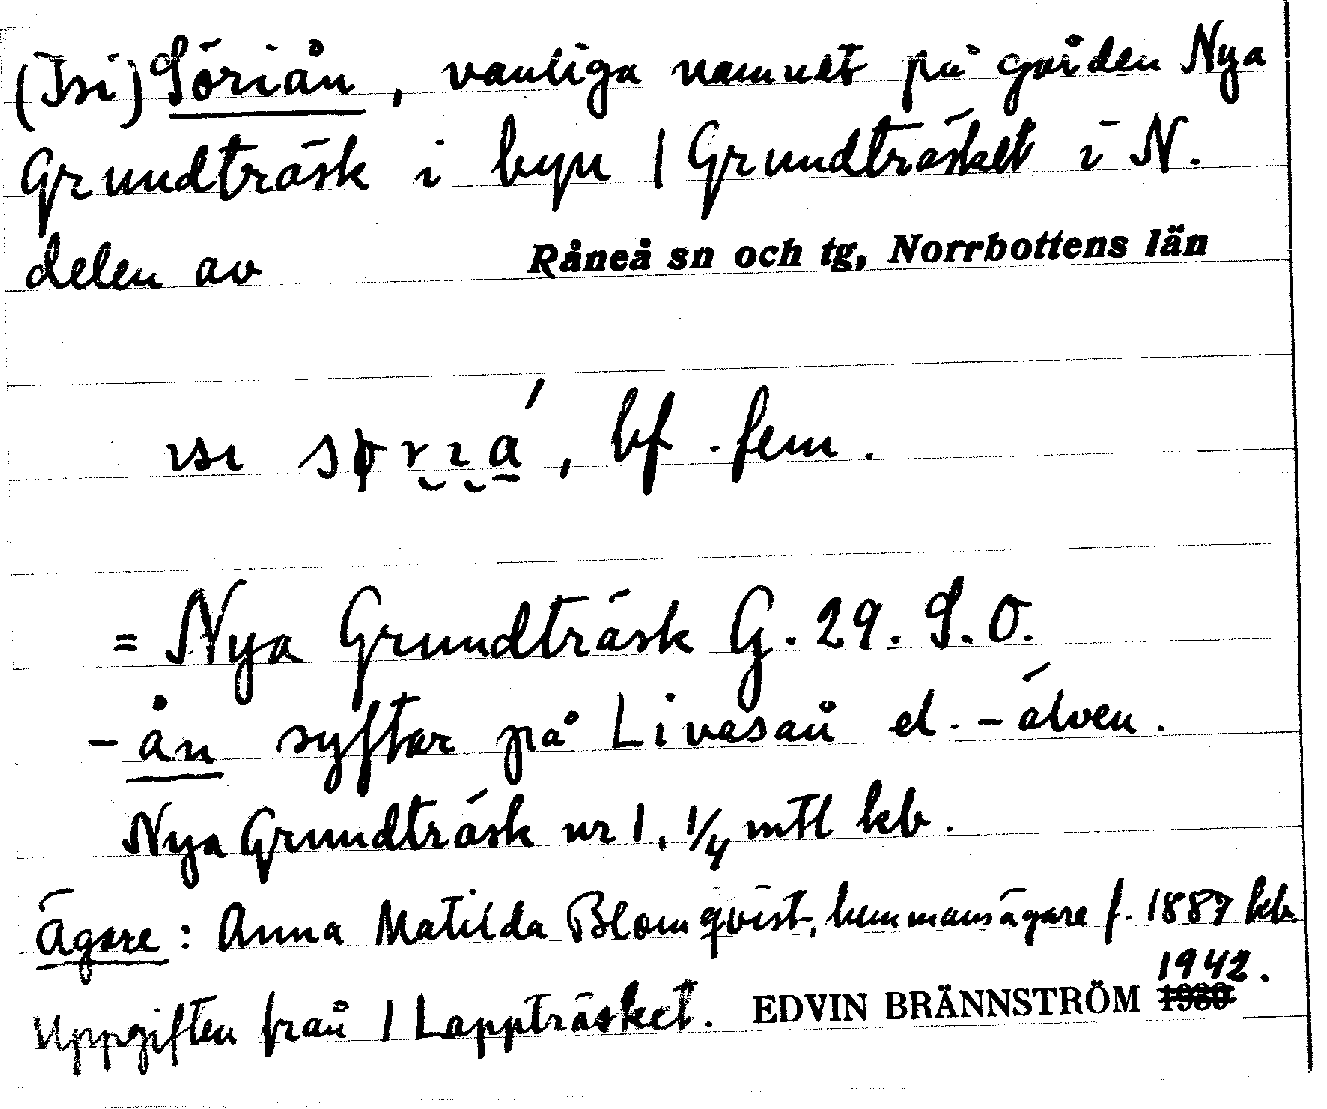 (Isi) Söriån, vanliga namnet på gården Nya
Grundträsk i byn 1 Grundträsket i N.
delen av Råneå sn och tg, Norrbottens län
ısı sørıa´, bf. fem.
= Nya Grundträsk G. 29. S.O.
-ån syftar på Livasån el. -älven.
Nya Grundträsk nr 1, 1/4 mtl kb.
Ägare: Anna Matilda Blomqvist, hemmansägare f. 1887 kb.
1942.
Uppgiften från 1 Lappträsket. EDVIN BRÄNNSTRÖM 1930